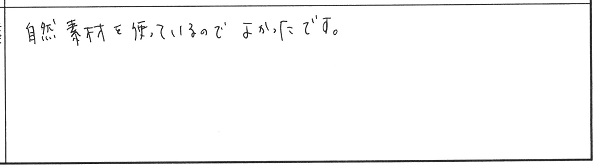 自然素材を使っているのでよかったです。